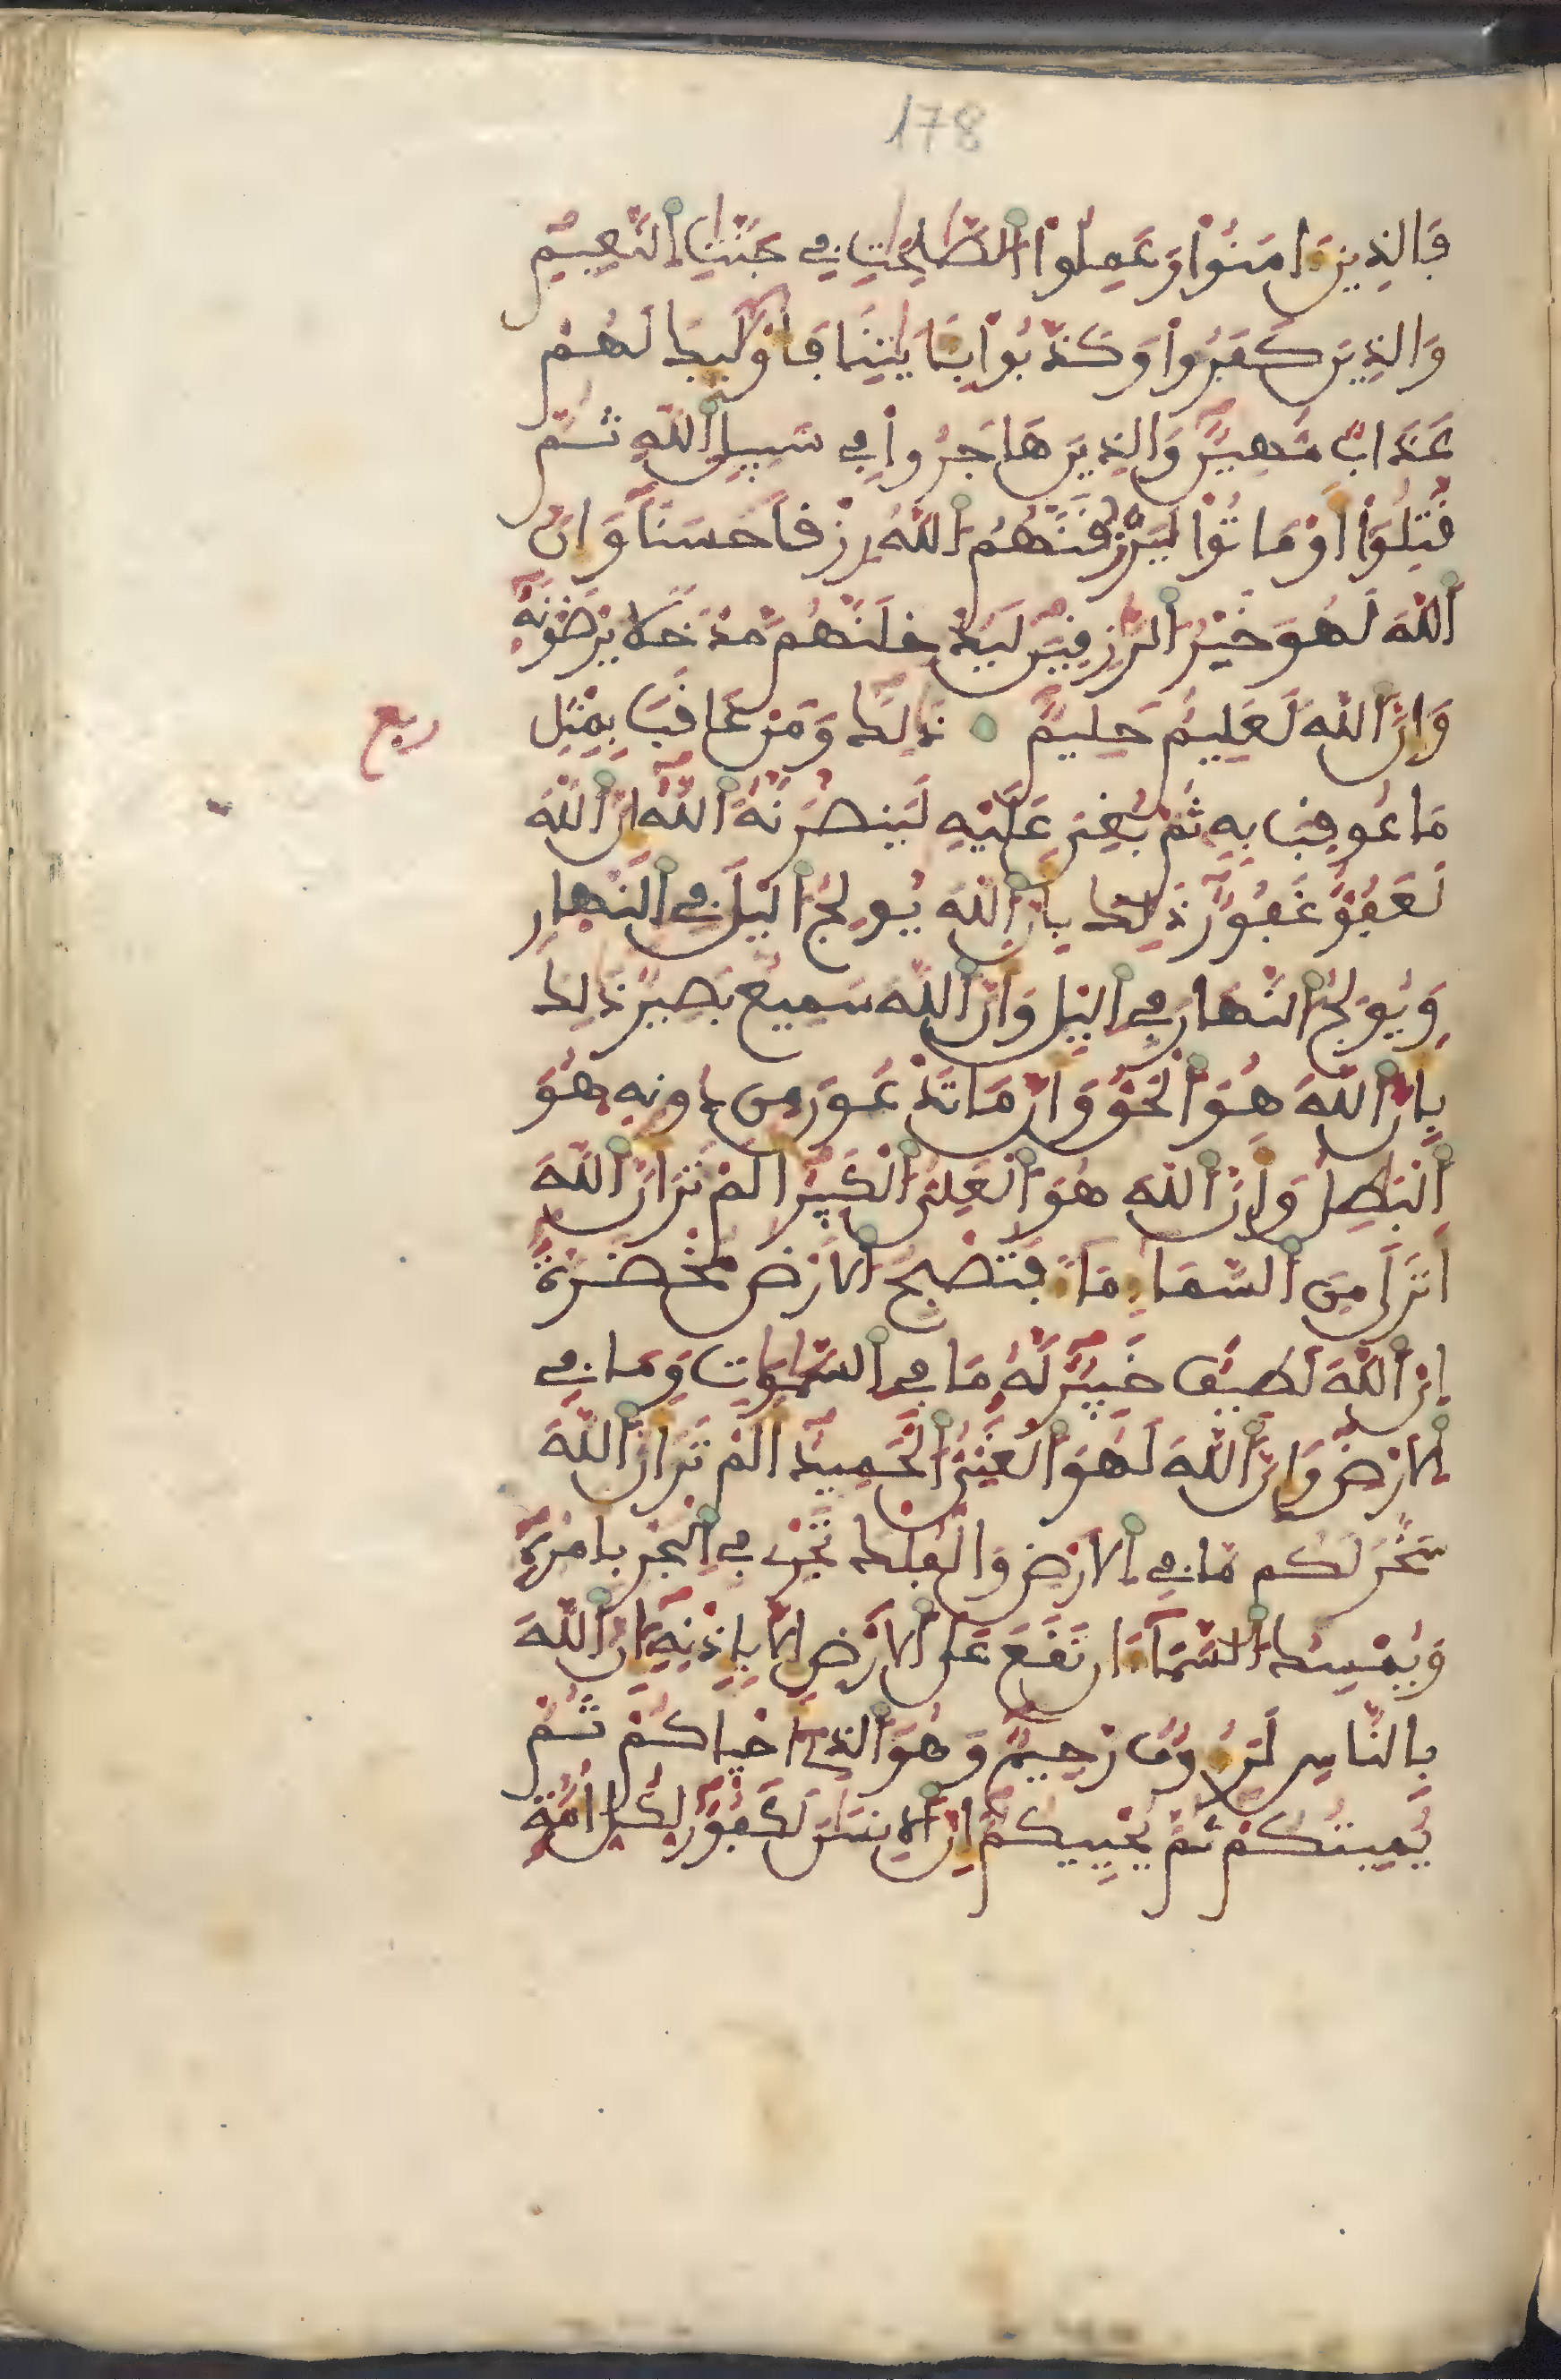 178
فَالذِينَ ءَامَنُواْ وَعَمِلُواْ اُ۬لصَّٰلِحَٰتِ فِے جَنَّٰتِ اِ۬لنَّعِيمِ
وَالذِينَ كَفَرُواْ وَكَذَّبُواْ بِـَٔايَٰتِنَا فَأُوْلَٰٓئِكَ لَهُمْ
عَذَابٞ مُّهِينٞ وَالذِينَ هَاجَرُواْ فِے سَبِيلِ اِ۬للَّهِ ثُمَّ
قُتِلُوٓاْ أَوْ مَاتُواْ لَيَرْزُقَنَّهُمُ اُ۬للَّهُ رِزْقاً حَسَناٗ وَإِنَّ
اَ۬للَّهَ لَهُوَ خَيْرُ اُ۬لرَّٰزِقِينَ لَيُدْخِلَنَّهُم مَّدْخَلاٗ يَرْضَوْنَهُۥ
وَإِنَّ اَ۬للَّهَ لَعَلِيمٌ حَلِيمٞ ذَٰلِكَ وَمَنْ عَاقَبَ بِمِثْلِ
ربع
مَا عُوقِبَ بِهِۦ ثُمَّ بُغِيَ عَلَيْهِ لَيَنصُرَنَّهُ اُ۬للَّهُ إِنَّ اَ۬للَّهَ
لَعَفُوٌّ غَفُورٞ ذَٰلِكَ بِأَنَّ اَ۬للَّهَ يُولِجُ اُ۬ليْلَ فِے اِ۬لنَّهِارِ
وَيُولِجُ اُ۬لنَّهَارَ فِے اِ۬ليْلِ وَأَنَّ اَ۬للَّهَ سَمِيعُۢ بَصِيرٞ ذَٰلِكَ
بِأَنَّ اَ۬للَّهَ هُوَ اَ۬لْحَقُّ وَأَنَّ مَا تَدْعُونَ مِن دُونِهِۦ هُوَ
اَ۬لْبَٰطِلُ وَأَنَّ اَ۬للَّهَ هُوَ اَ۬لْعَلِيُّ اُ۬لْكَبِيرُ أَلَمْ تَرَ أَنَّ اَ۬للَّهَ
أَنزَلَ مِنَ اَ۬لسَّمَآءِ مَآءٗ فَتُصْبِحُ اُ۬لَارْضُ مُخْضَرَّةً
إِنَّ اَ۬للَّهَ لَطِيفٌ خَبِيرٞ لَّهُۥ مَا فِے اِ۬لسَّمَٰوَٰتِ وَمَا فِے
اِ۬لَارْضِ وَإِنَّ اَ۬للَّهَ لَهُوَ اَ۬لْغَنِيُّ اُ۬لْحَمِيدُ أَلَمْ تَرَ أَنَّ اَ۬للَّهَ
سَخَّرَ لَكُم مَّا فِے اِ۬لَارْضِ وَالْفُلْكَ تَجْرِے فِے اِ۬لْبَحْرِ بِأَمْرِهِۦ
وَيُمْسِكُ اُ۬لسَّمَآءَ ان تَقَعَ عَلَى اَ۬لَارْضِ إِلَّا بِإِذْنِهِۦٓ إِنَّ اَ۬للَّهَ
بِالنَّاسِ لَرَءُوفٞ رَّحِيمٞ وَهُوَ اَ۬لذِےٓ أَحْيِاكُمْ ثُمَّ
يُمِيتُكُمْ ثُمَّ يُحْيِيكُمُۥٓ إِنَّ اَ۬لِانسَٰنَ لَكَفُورٞ لِّكُلِّ أُمَّةٖ